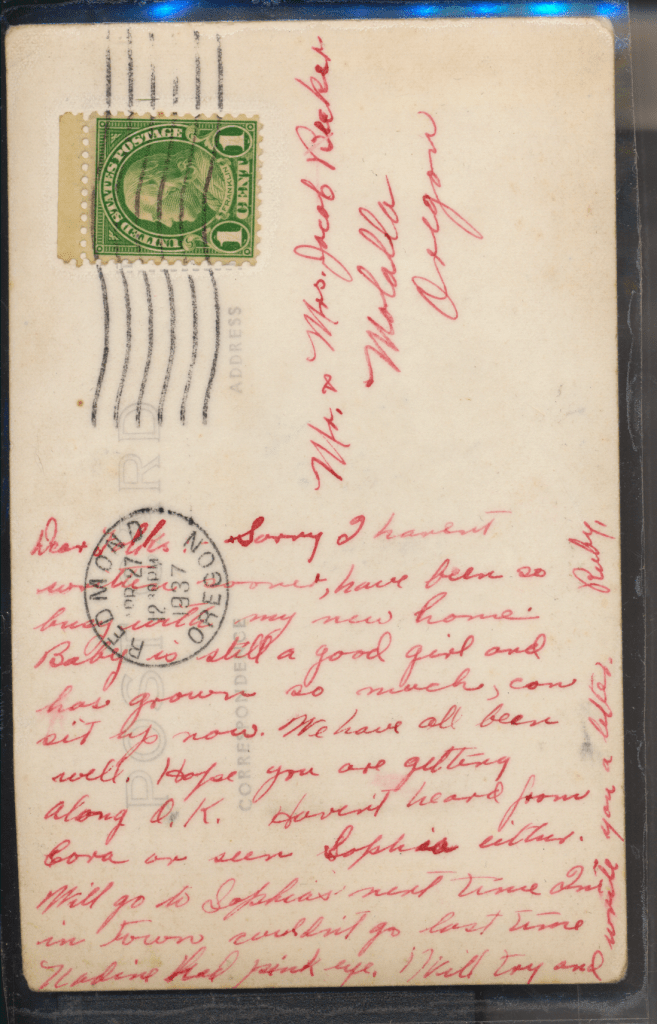 UNITED STATES POSTAGE
FRANKLIN
1 CENT 1
REDMOND
APR 27
12 30 PM
1937
OREGON
POST CARD
ADDRESS
CORRESPONDENCE
Mr. & Mrs. Jacob Becker
Molalla
Oregon
Dear Folks: Sorry I havent
written sooner, have been so
busy with my new home.
Baby is still a good girl and
has grown so much, can
sit up now. We have all been
well. Hope you are getting
along O.K. Haven't heard from
Cora or seen Sophia either.
Will go to Sophias next time Im
in town couldn't go last time
Nadine had pink eye. Will try and
write you a letter. Ruby.